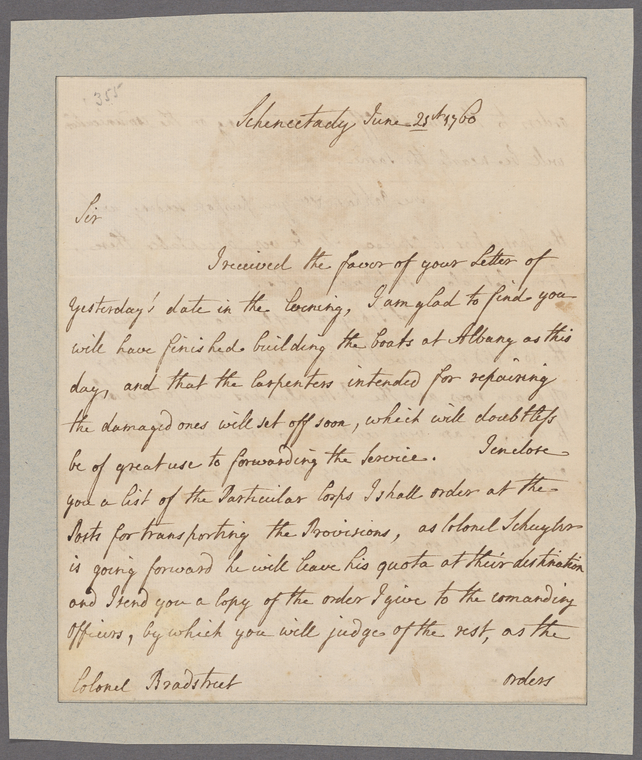 355
Schenectady June 21st 1760
Sir
I received the favor of your Letter of
Yesterday's date in the Evening, I am glad to find you
will have finished building the boats at Albany as this
day, and that the Carpenters intended for repairing
the damaged ones will set off soon, which will doubtless
be of great use to forwarding the Service. I inclose
you a list of the Particular Corps I shall order at the
Posts for transporting the Provisions, as Colonel Schuyler
is going forward he will leave his quota at their destination
and I send you a Copy of the order I give to the comanding
Officers, by which you will judge of the rest, as the
Colonel Bradstreet orders